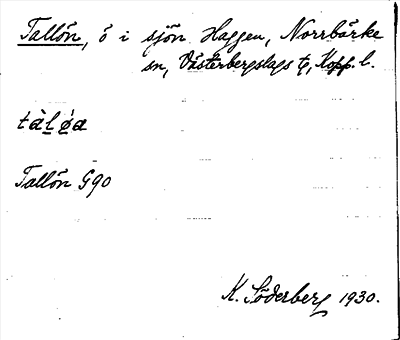 Tallön, ö i sjön Haggen, Norrbärke
sn, Västerbergslags tg, Kopp. l.
tàl̯ø̀a
Tallön G90
K. Söderberg 1930.